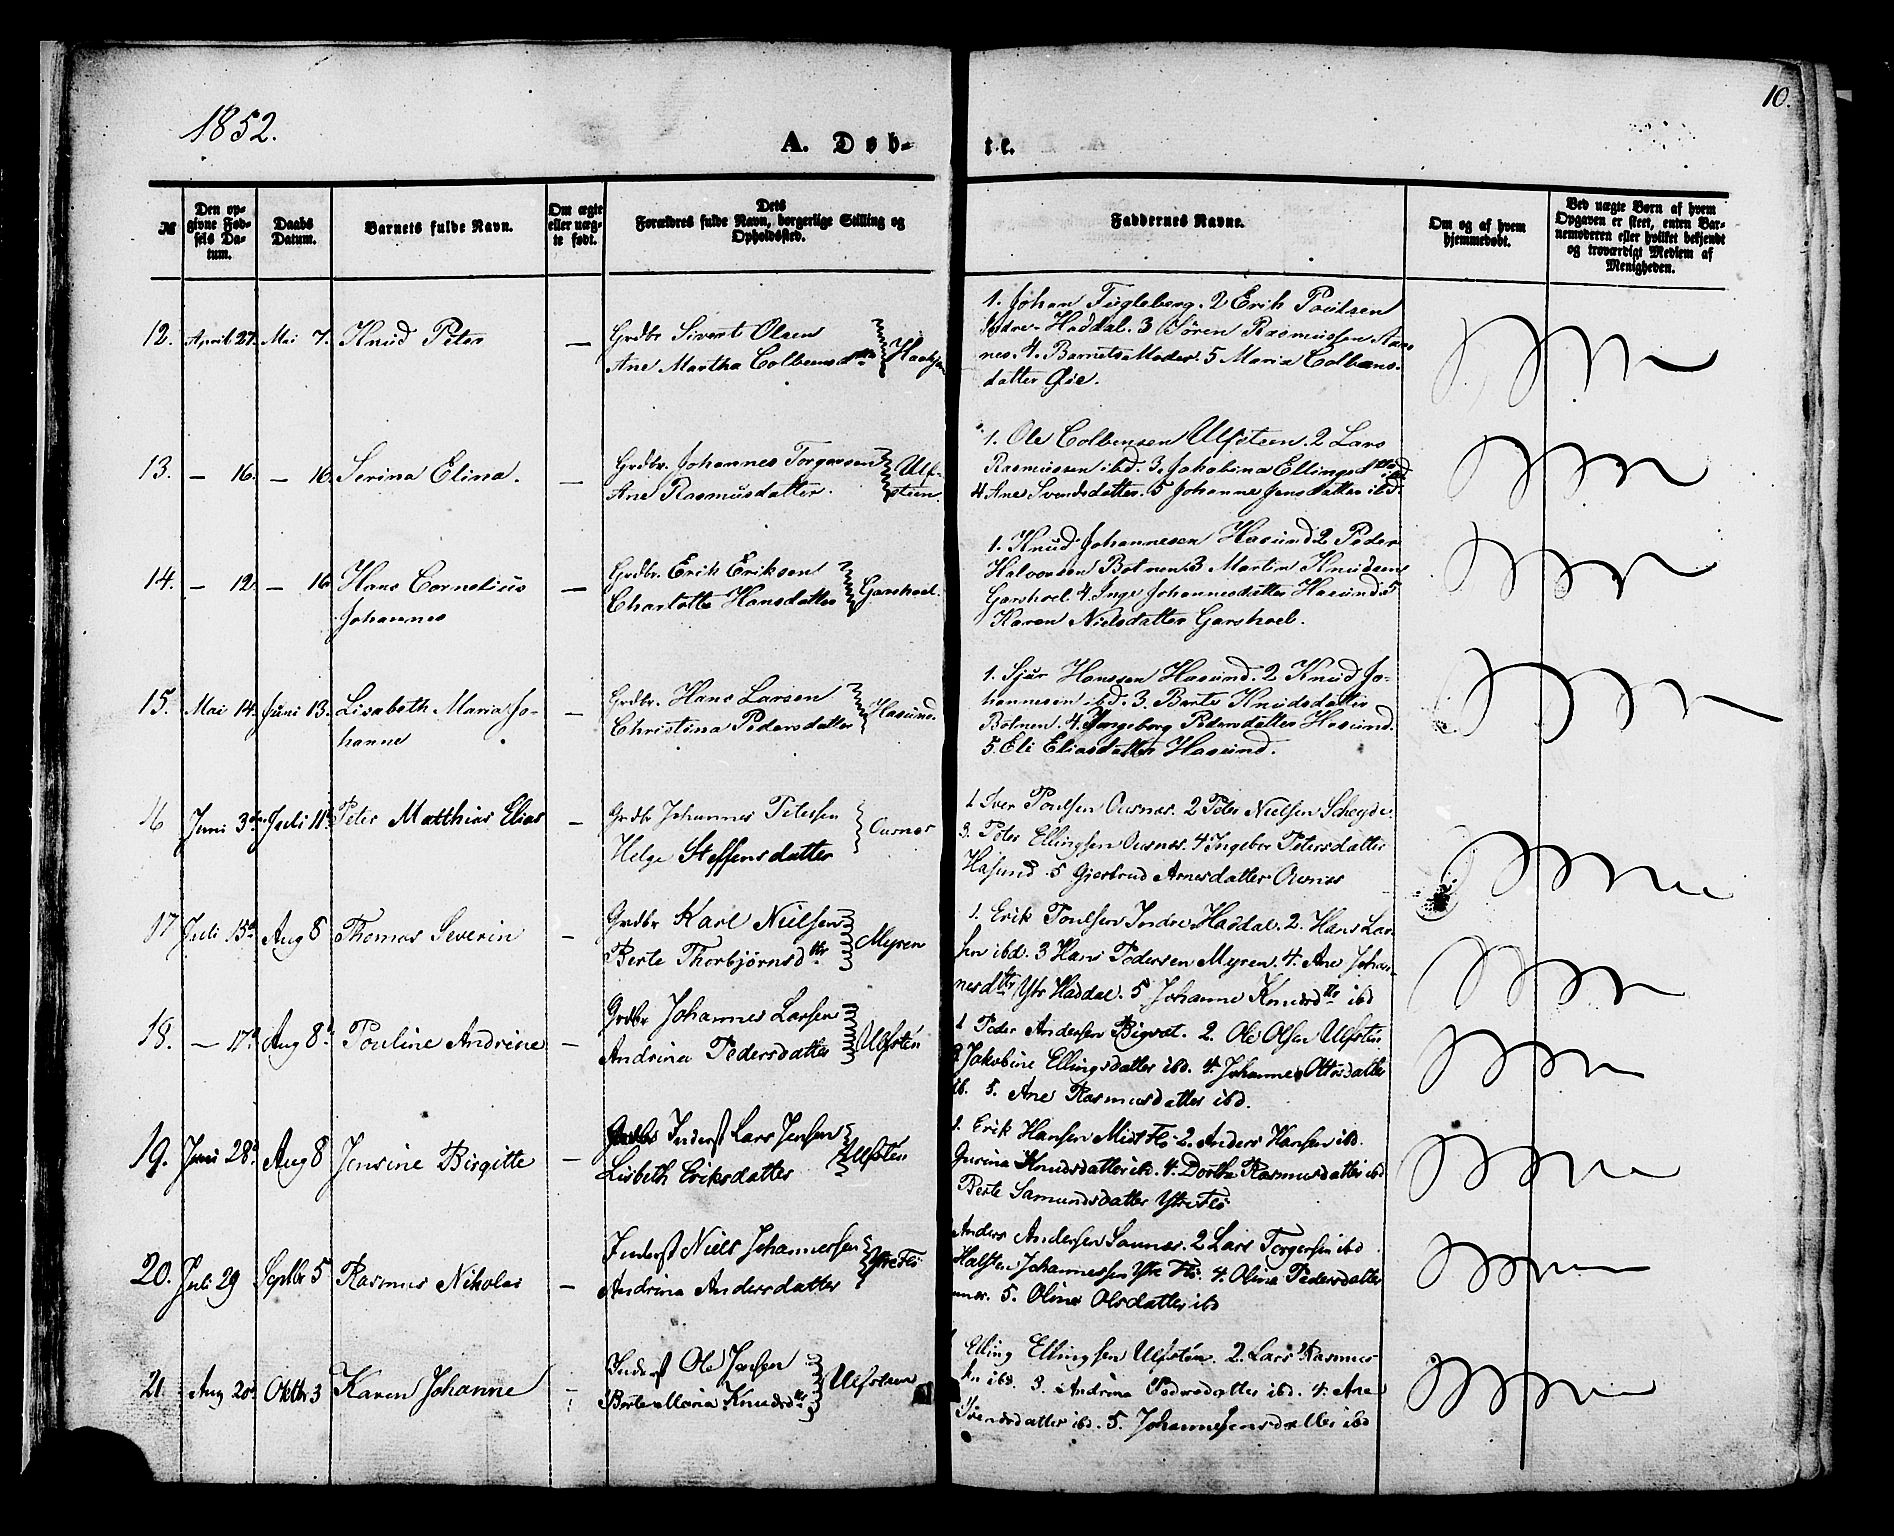 1852.
10.
A. Døb-
te.
№
Den op-
givne Fød-
sels Da-
tum.
Daabs
Datum.
Barnets fulde Navn.
Om ægte
eller uæg-
te født.
Dets
Forældres fulde Navn, borgerlige Stilling og
Opholdssted.
Faddernes Navne.
Om og af hvem
hjemmedøbt.
Ved uægte Børn af hvem
Opgaven er skeet, enten Bar-
nemoderen eller hvilket bekjendt
og troværdigt Medlem af
Menigheden.
12. April 27. Mai 7. Knud Peter —
Grdbr Sivert Olsen
Ane Martha Colbensdttr
1. Johan Fugleberg. 2 Erik Poulsen
Indre-Haddal. 3 Søren Rasmussen Aur-
nes. 4. Barnets Moder. 5 Maria Colbens-
datter Øie.
13. — 16. — 16. Serina Elina. —
Grdbr. Johannes Torgersen Ulf-
Ane Rasmusdatter. steen.
1. Ole Colbensen Ulfsteen. 2 Lars
Rasmussen ibd. 3. Jakobina Ellingsdttr ibd
4 Ane Svendsdatter. 5 Johanne Jensdatter ibd.
14. — 12. — 16. Hans Cornelius —
Johannes
Grdbr. Erik Eriksen
Charlotte Hansdatter Garshoel.
1. Knud Johannesen Hasund 2 Peder
Halvorsen Botnen 3 Martin Knudsen
Garshoel. 4. Inge Johannesdatter Hasund 5
Karen Nielsdatter Garshoel.
15. Mai 14. Juni 13. Lisabeth Maria Jo- —
hanne
Grdbr. Hans Larsen
Christina Pedersdatter Hasund.
1. Sjur Hanssen Hasund. 2 Knud Jo-
hannesen ibd. 3. Berte Knudsdatter
Botnen. 4. Ingeborg Pedersdatter Hasund.
5. Eli Eliasdatter Hasund.
16 Juni 3 Juli 11 Peter Matthias Elias —
Grdbr Johannes Petersen
Helge Steffensdatter Ournes
1 Iver Poulsen Ournes. 2 Peter Nielsen
3. Peter Ellingsen Ournes. 4 Ingebor Petersdatter
Hasund. 5 Giertrud Arnesdatter Ournes
17 Juli 15d Aug 8 Thomas Severin —
Grdbr Karl Nielsen
Berte Thorbjørnsdttr Myren
1. Erik Poulsen Indre Haddal. 2. Hans Lar-
sen ibd. 3 Hans Pedersen Myren. 4. Ane Johan-
nesdttr Ytr Haddal. 5 Johanne Knudsdttr ibd
18. — 17d Aug 8d Pouline Andrine —
Grdbr Johannes Larsen
Andrina Pedersdatter Ulfstén
1 Peder Andersen Bigset. 2. Ole Olsen Ulfstén
3 Jakobine Ellingsdatter ibd. 4. Johanne Ottosdatter
ib. 5. Ane Rasmusdatter ibd.
19. Juni 28d Aug 8 Jensine Birgitte —
Inderst Lars Jensen
Lisbeth Eriksdatter Ulfstén
1. Erik Hansen Midt Flø 2. Anders Hansen ibd.
Gurina Knudsdatter ib. 4. Dorthe Rasmusdatter ibd
Berte Samundsdatter Ytre Flø
20. Juli 29 Septbr 5 Rasmus Nikolai —
Inderst Niels Johannessen Ytre Flø
Andrina Andersdatter
Anders Andersen Saunes. 2 Lars Torgersen ibd
Halsten Johannessen Ytre Flø. 4. Olina Pedersdatter
5. Oline Olsdatter ibd
21. Aug 20d Oktbr 3 Karen Johanne —
Inderst Ole Jensen
Berte Maria Knudsdttr Ulfsteen
Elling Ellingsen Ulfstén. 2. Lars Rasmus-
sen ibd. 3. Andrina Pedersdatter ibd. 4. Ane
Svendsdatter ibd. 5. Johanne Jensdatter ibd